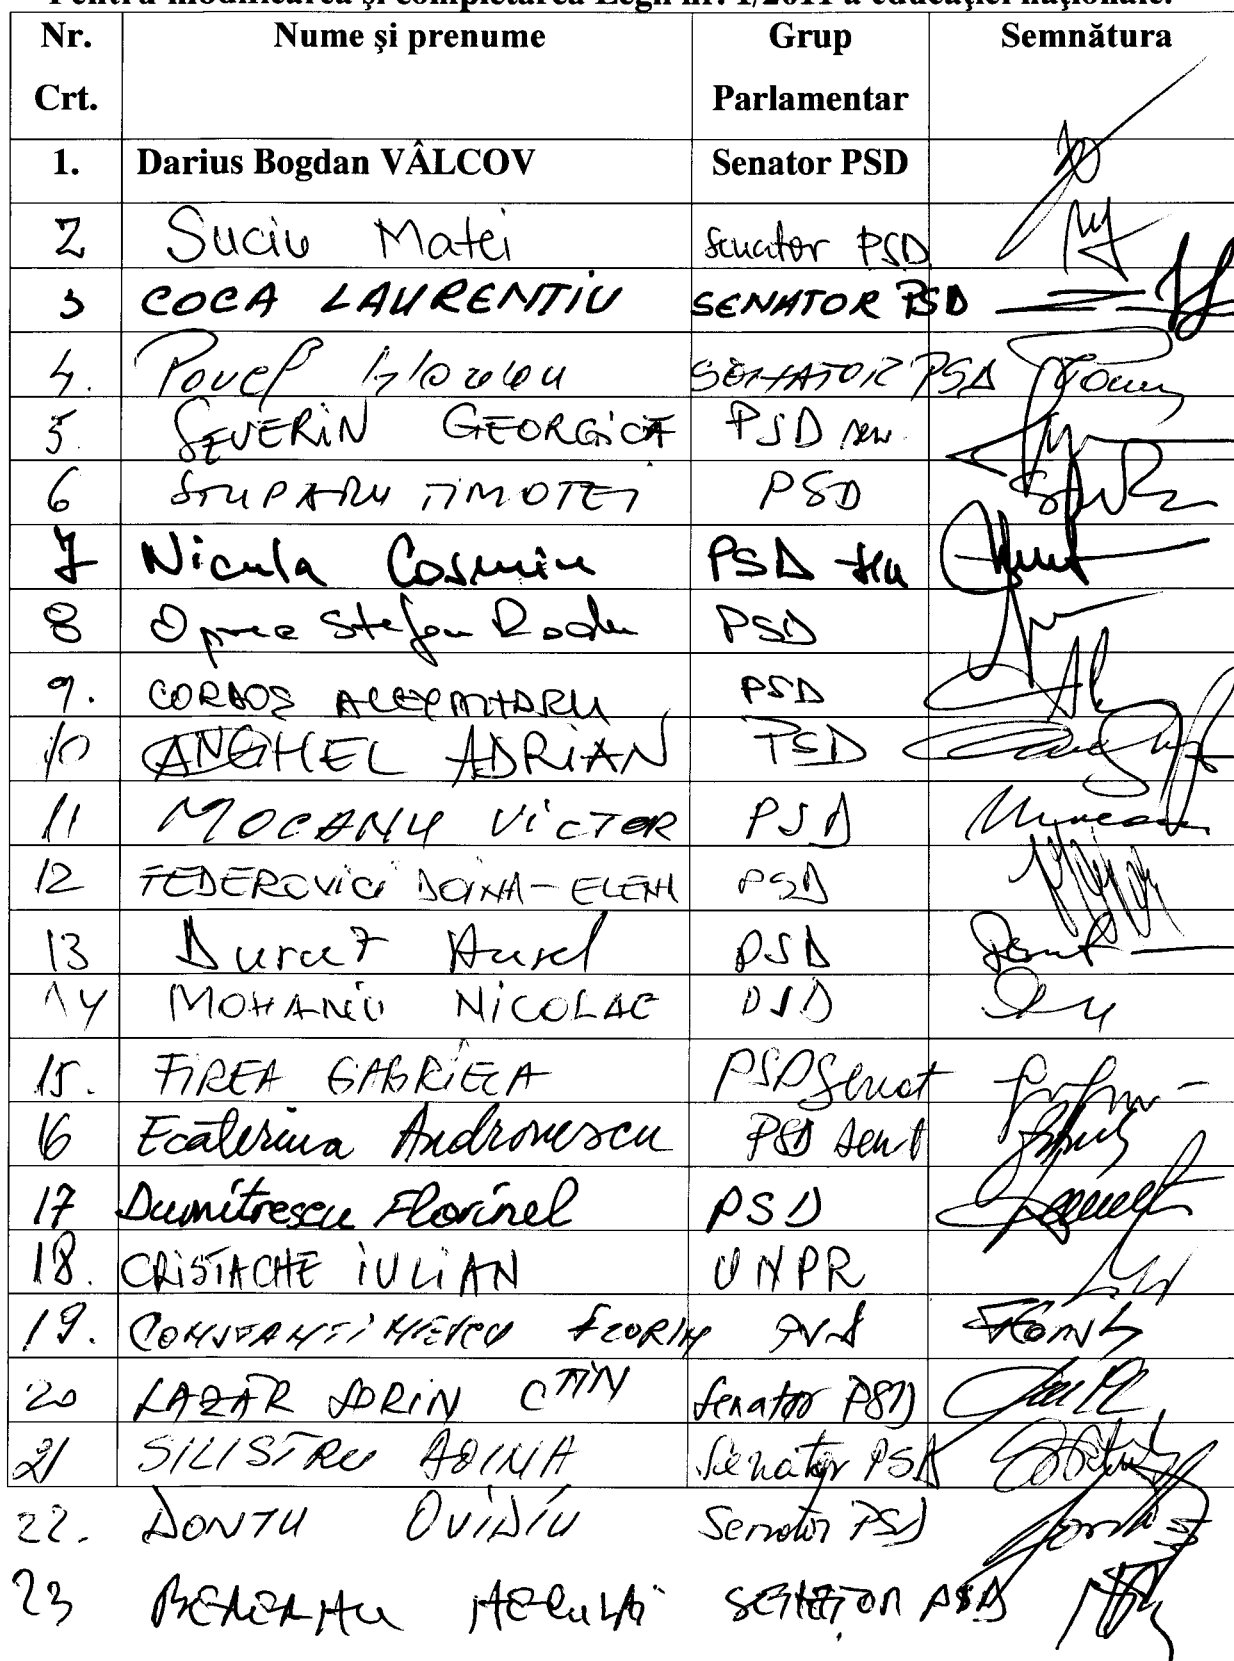 Pentru modificarea şi completarea Legii nr. 1/2011 a educaţiei naţionale.
Nr. Crt. Nume şi prenume Grup Parlamentar Semnătura
1. Darius Bogdan VÂLCOV Senator PSD
2 Suciu Matei Senator PSD
3 COCA LAURENTIU SENATOR PSD
4. SENATOR PSD
5. SEVERIN GEORGICĂ PSD sen.
6 STUPARU TIMOTEI PSD
7 Nicula Cosmin PSD
8 Oprea Stefan Radu PSD
9. CORDOS ALEXANDRU PSD
10 ANGHEL ADRIAN PSD
11 MOCANU VICTOR PSD
12 FEDEROVICI DOINA-ELENA PSD
13 Durut Aurel PSD
14 MOHANU NICOLAE PSD
15. FIREA GABRIELA PSD Senat
16 Ecaterina Andronescu PSD Senat
17 Dumitrescu Florinel PSD
18. CRISTACHE IULIAN UNPR
19. CONSTANTINESCU FLORIN PSD
20 LAZĂR SORIN CTIN Senator PSD
21 SILISTRU DOINA Senator PSD
22. DONTU OVIDIU Senator PSD
23 SENATOR PSD